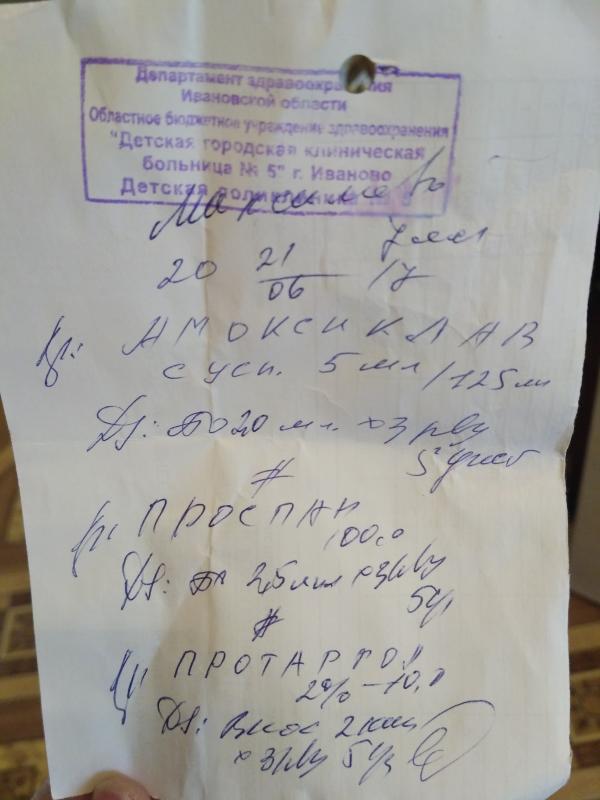 Департамент здравоохранения
Ивановской области
Областное бюджетное учреждение здравоохранения
"Детская городская клиническая
больница № 5" г. Иваново
Детская поликлиника
20 21/06 17
Rp: АМОКСИКЛАВ
сусп. 5 мл/125 мл
DS: По 20 мл. x 3 р/д
5 дней
#
Rp: ПРОСПАН
100,0
DS: по 2,5 мл x 3 р/д
5 д
#
Rp: ПРОТАРГОЛ
2% - 10,0
DS: В нос 2 кап
x 3 р/д 5 д